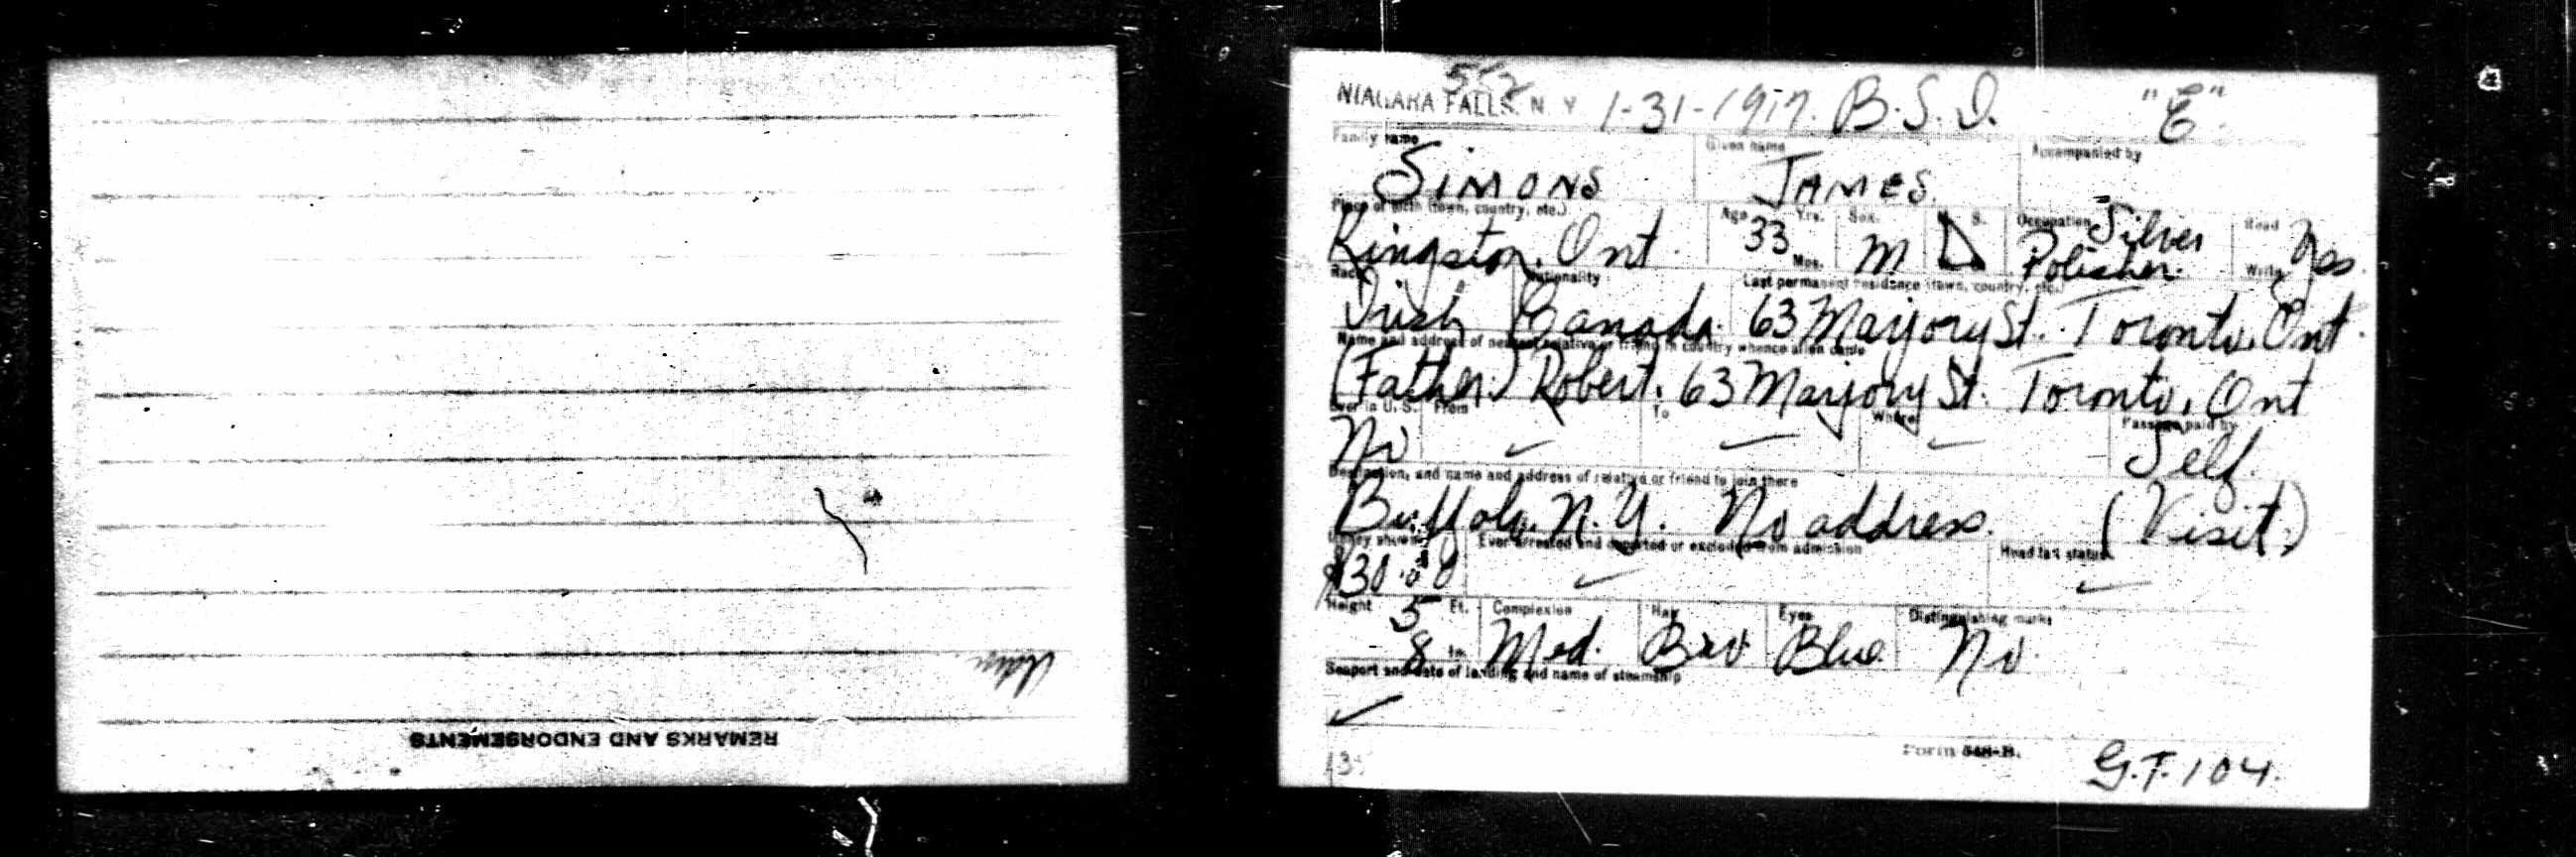 REMARKS AND ENDORSEMENTS
552
NIAGARA FALLS, N. Y. 1-31-1917. B.S.I. "E".
Family name Given name Accompanied by
SIMONS JAMES.
Place of birth (town, country, etc.) Age Yrs. Mos. Sex. S. Occupation Read Write
Kingston, Ont. 33 M Silver Polisher.
Race Nationality Last permanent residence (town, country, etc.)
Irish Canada. 63 Marjory St. Toronto, Ont.
Name and address of nearest relative or friend in country whence alien came
(Father.) Robert. 63 Marjory St. Toronto, Ont
Ever in U. S. From To Where Passage paid by
No ✓ ✓ ✓ Self.
Destination, and name and address of relative or friend to join there
Buffalo, N.Y. No address. (Visit.)
Money shown Ever arrested and deported or excluded from admission Head tax status
$30.00 ✓ ✓
Height Ft. In. Complexion Hair Eyes Distinguishing marks
5 8 Med. Bro Blue. No.
Seaport and date of landing and name of steamship
✓
Form 548-B.
G.T. 104.